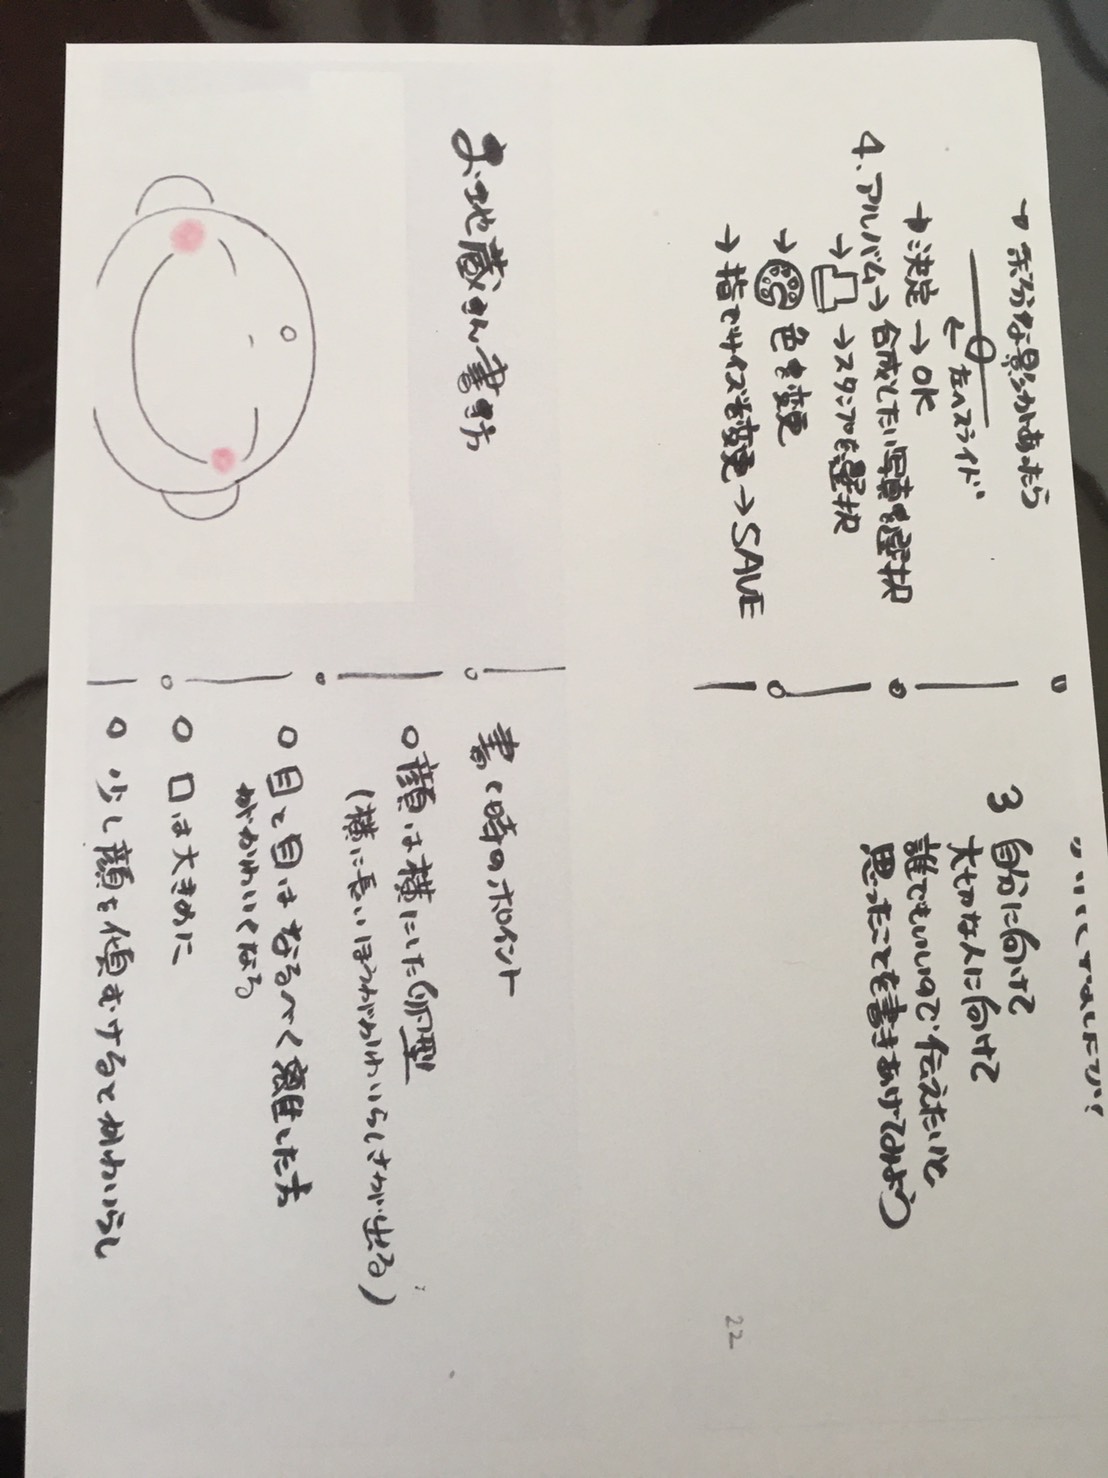 → 余分な影があったら
← 左へスライド
→ 決定 → OK
4. アルバム → 合成したい写真を選択
→ → スタンプを選択
→ 色を変更
→ 指でサイズを変更 → SAVE
3 自分に向けて
大切な人に向けて
誰でもいいので伝えたいと
思ったことを書きあげてみよう
22
お地蔵さん書き方
書く時のポイント
○ 顔は横にした卵型
(横に長いほうがかわいらしさが出る)
○ 目と目はなるべく離した方
がかわいくなる
○ 口は大きめに
○ 少し顔を傾むけるとかわいらし